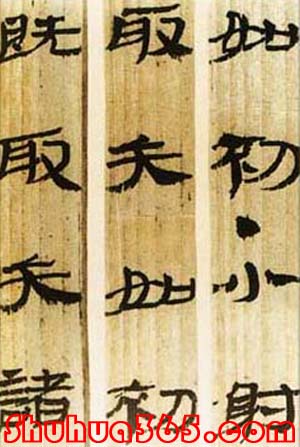 如初•小射
取矢如初
既取矢諸
Shuhua365.com